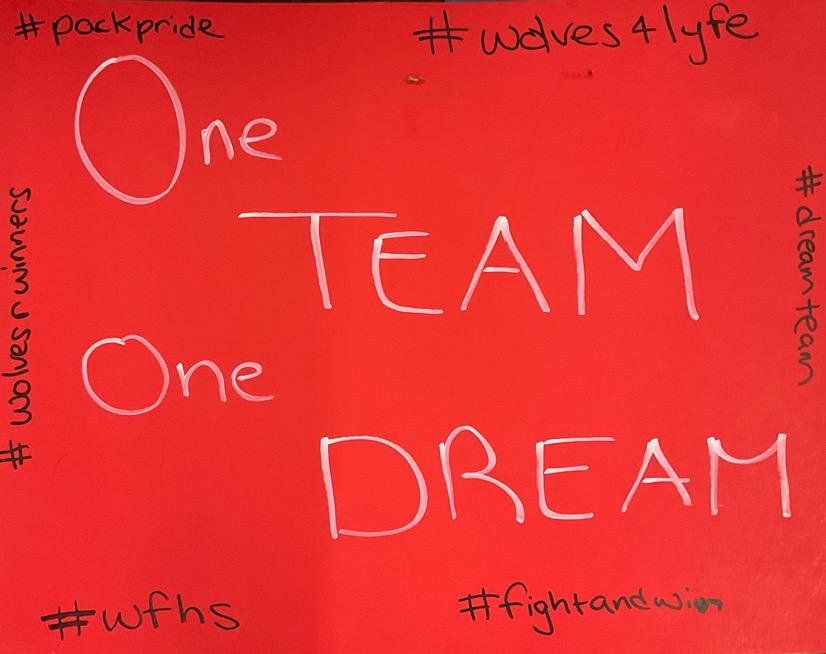 #packpride
#wolves4lyfe
One
TEAM
One
DREAM
#wolvesrwinners
#dreamteam
#wfhs
#fightandwin